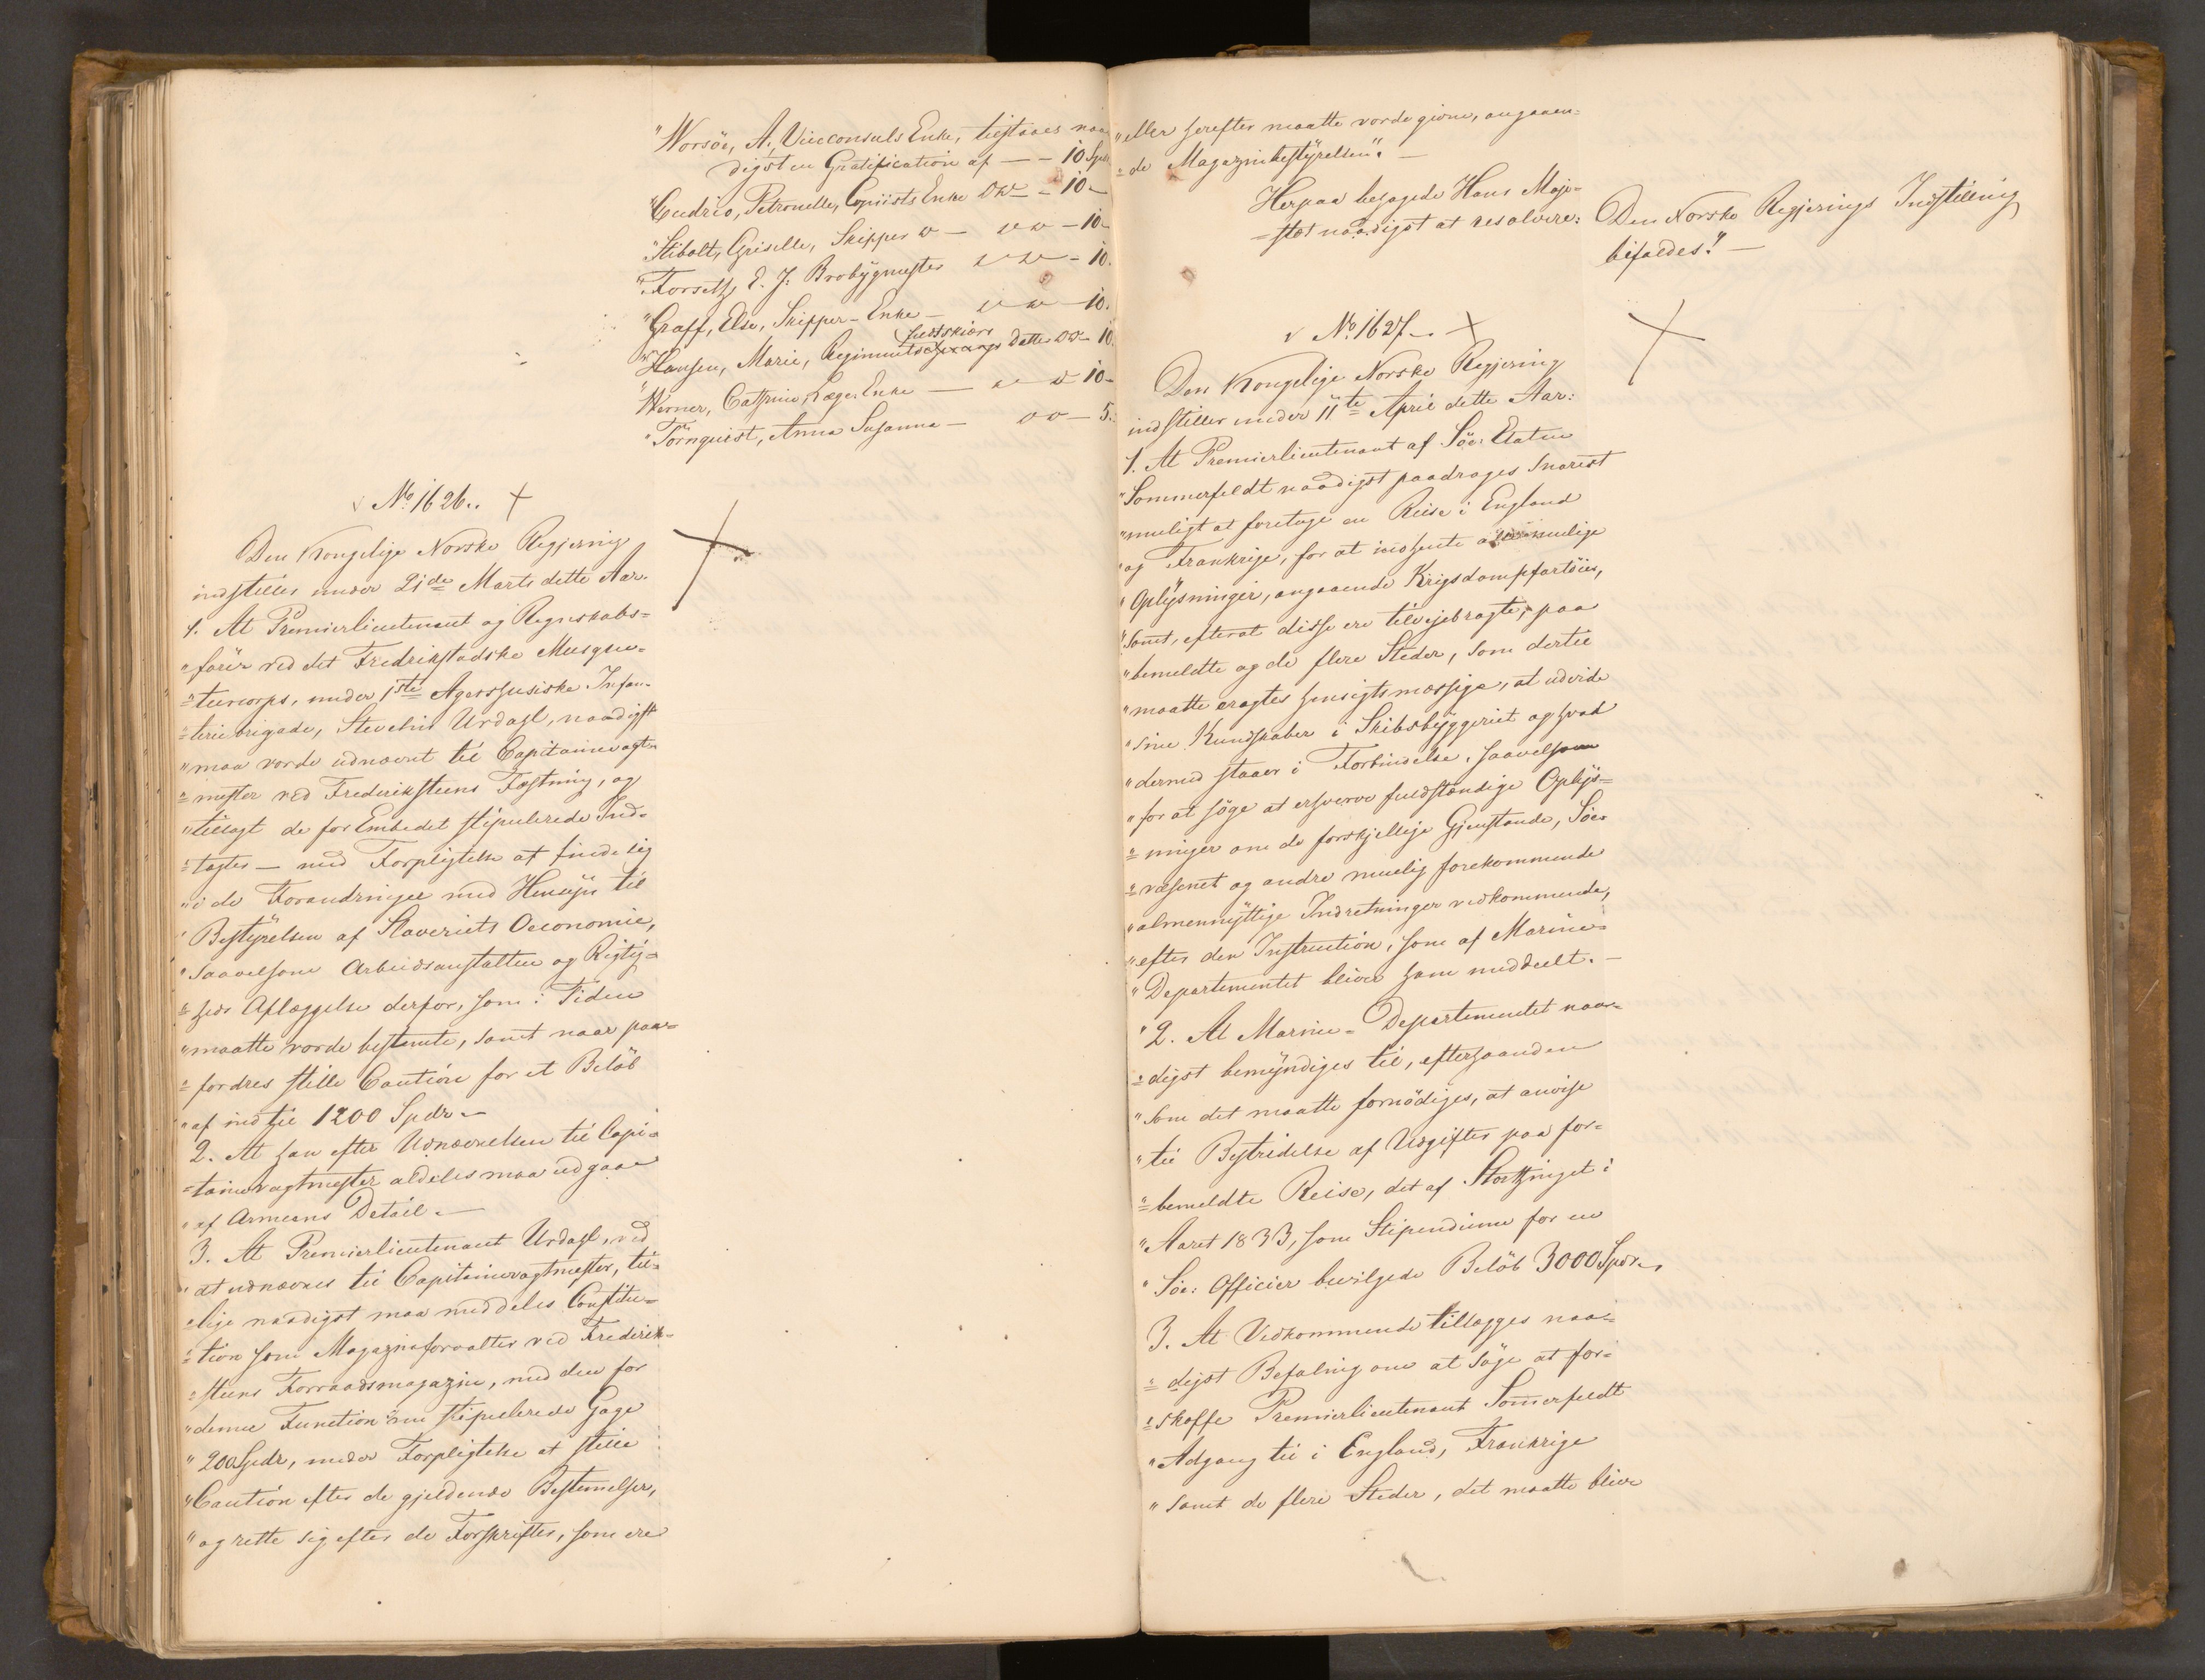 "Worsöe, A. Viceconsuls Enke, tilstaaes naa
digst en Gratification af — 10 Spd
"Cudrio, Petronelle, Copiists Enke do — 10 —
"Stibolt, Griselle, Skipper do — do — 10 —
"Forseth, E. J. Brobygmester do — 10.
"Graff, Else, Skipper-Enke — do — 10.
"Hansen, Marie, Regiments Feldskiærs Datter do — 10.
"Werner, Cathrine, Læge-Enke — do — 10 —
"Törnquist, Anna Susanna — do — 5.
No 1626. +
Den Kongelige Norske Regjering
indstiller under 21de Marts dette Aar.
1. At Premierlieutenant og Regnskabs=
"förer ved det Fredrikstadske Musque=
"teercorps, under 1ste Agershusiske Infan=
"teriebrigade, Stevelin Urdahl, naadigst
"maa vorde udnævnt til Capitainevagt=
"mester ved Frederiksteens Fæstning, og
"tillagt de for Embedet stipulerede Ind=
"tægter — med Forpligtelse at finde sig
"i de Forandringer med Hensyn til
"Bestyrelsen af Slaveriets Oeconomie,
"saavelsom Arbeidsanstalten og Rigtig=
"heds Aflæggelse derfor, som i Tiden
"maatte vorde bestemte, samt naar paa=
"fordres stille Caution for et Belöb
"af indtil 1200 Spdr. —
2. At han efter Udnævnelsen til Capi=
"tainevagtmester aldeles maa udgaae
"af Armeens Detail. —
3. At Premierlieutenant Urdahl, ved
"at udnævnes til Capitainevagtmester, til=
"lige naadigst maa meddeles Constitu=
"tion som Magazinforvalter ved Frederik=
"steens Forraadsmagazin, med den for
"denne Function nu stipulerede Gage
"200 Spdr, under Forpligtelse at stille
"Caution efter de gjeldende Bestemelser,
"og rette sig efter de Forskrifter, som ere
"eller herefter maatte vorde givne, angaaen=
"de Magazinbestyrelsen". —
Herpaa behagede Hans Maje=
=stæt naadigst at resolvere:
Den Norske Regjerings Indstilling
bifaldes!" —
No 1627. +
Den Kongelige Norske Regjering
indstiller under 11te April dette Aar:
1. At Premierlieutenant af Söe-Etaten
"Sommerfeldt naadigst paadrages snarest
"muligt at foretage en Reise i England
"og Frankrige, for at indhente muelige
"Oplysninger, angaaende Krigsdampfartöier,
"samt, efterat disse ere tilveiebragte, paa
"bemeldte og de flere Steder, som dertil
"maatte eragtes hensigtsmæssige, at udvide
"sine Kundskaber i Skibsbyggeriet og hvad
"dermed staaer i Forbindelse, saavelsom
"for at söge at erhverve fuldstændige Oplys=
"ninger om de forskjellige Gjenstande, Söe=
"væsenet og andre muelig forekommende
"almennyttige Indretninger vedkommende,
"efter den Instruction, som af Marine=
"Departementet bliver ham meddeelt. —
"2. At Marine-Departementet naa=
"digst bemyndiges til, efterhaanden
"som det maatte fornödiges, at anvise
"til Bestridelse af Udgifter paa for=
"bemeldte Reise, det af Storthinget i
"Aaret 1833, som Stipendium for en
"Söe-Officier bevilgede Belöb 3000 Spdr.
3. At Vedkommende tillægges naa=
"digst Befaling om at söge at for=
"skaffe Premierlieutenant Somerfeldt
"Adgang til i England, Frankrige
"samt de flere Steder, det maatte blive